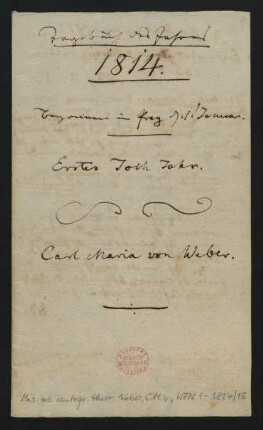 Tagebuch des Jahres
1814.
begonnen in Prag d: 1t Januar.
Erstes Jahr.
Carl Maria von Weber.
Mus. ms. autogr. theor. Weber, C.M.v., WFN 1 - 1814/15